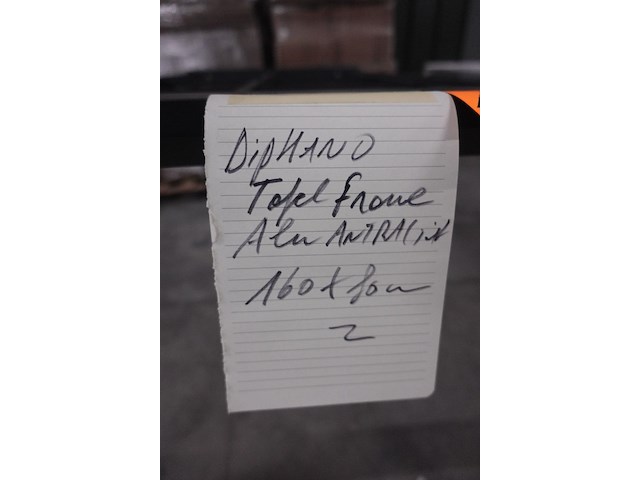 DipHANO
Tafel frame
Alu ANTRACiet
160 x 80 cm
2